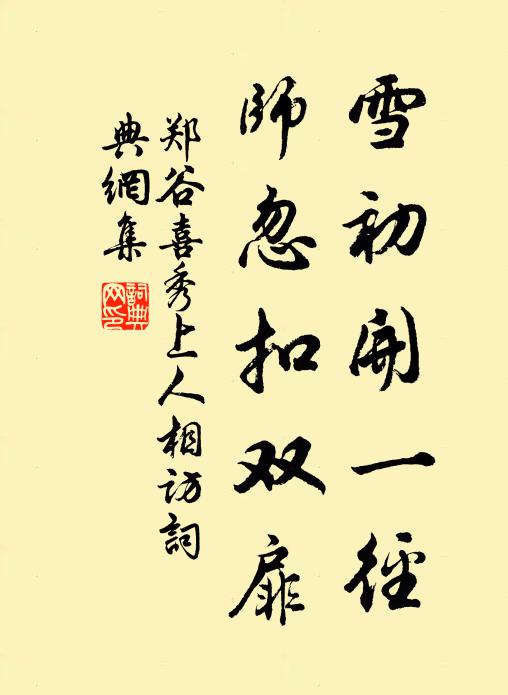 雪初開一徑
師忽扣双扉
郑谷喜秀上人相访詞
典網集
詞典网印